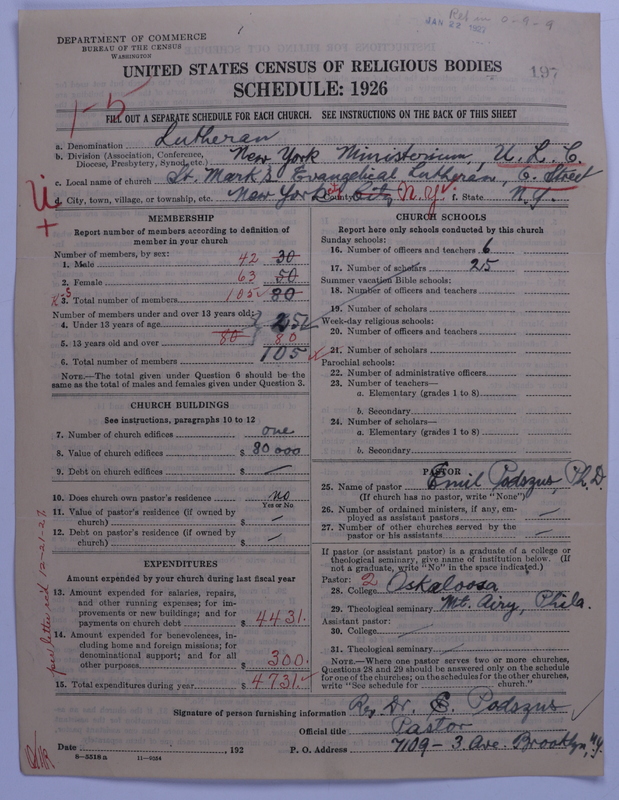 DEPARTMENT OF COMMERCE
BUREAU OF THE CENSUS
WASHINGTON
JAN 22 1927
197
UNITED STATES CENSUS OF RELIGIOUS BODIES
SCHEDULE: 1926
1-5
FILL OUT A SEPARATE SCHEDULE FOR EACH CHURCH. SEE INSTRUCTIONS ON THE BACK OF THIS SHEET
a. Denomination Lutheran
b. Division (Association, Conference, Diocese, Presbytery, Synod, etc.) New York Ministerium, U. L. C.
c. Local name of church St. Mark's Evangelical Lutheran, 6. Street
d. City, town, village, or township, etc. New York City e. County N.Y. f. State N.Y.
MEMBERSHIP
Report number of members according to definition of
member in your church
Number of members, by sex:
1. Male 42 30
2. Female 63 50
3. Total number of members 105 80
Number of members under and over 13 years old:
4. Under 13 years of age 25
5. 13 years old and over 80 80
6. Total number of members 105
NOTE.—The total given under Question 6 should be
the same as the total of males and females given under Question 3.
CHURCH BUILDINGS
See instructions, paragraphs 10 to 12
7. Number of church edifices one
8. Value of church edifices $ 80000
9. Debt on church edifices $ —
10. Does church own pastor's residence no
Yes or No
11. Value of pastor's residence (if owned by
church) $ —
12. Debt on pastor's residence (if owned by
church) $ —
EXPENDITURES
Amount expended by your church during last fiscal year
13. Amount expended for salaries, repairs,
and other running expenses; for im-
provements or new buildings; and for
payments on church debt $ 4431.
14. Amount expended for benevolences, in-
cluding home and foreign missions; for
denominational support; and for all
other purposes $ 300.
15. Total expenditures during year $ 4731.
per letter rec'd 12-21-27
CHURCH SCHOOLS
Report here only schools conducted by this church
Sunday schools:
16. Number of officers and teachers 6
17. Number of scholars 25
Summer vacation Bible schools:
18. Number of officers and teachers
19. Number of scholars
Week-day religious schools:
20. Number of officers and teachers
21. Number of scholars
Parochial schools:
22. Number of administrative officers
23. Number of teachers—
a. Elementary (grades 1 to 8)
b. Secondary
24. Number of scholars—
a. Elementary (grades 1 to 8)
b. Secondary
PASTOR
25. Name of pastor Emil Podszus, Ph.D.
(If church has no pastor, write "None")
26. Number of ordained ministers, if any, em-
ployed as assistant pastors —
27. Number of other churches served by the
pastor or his assistants —
If pastor (or assistant pastor) is a graduate of a college or
theological seminary, give name of institution below. (If
not a graduate, write "No" in the space indicated.)
Pastor: 2
28. College Oskaloosa
29. Theological seminary Mt. Airy, Phila.
Assistant pastor:
30. College —
31. Theological seminary —
NOTE.—Where one pastor serves two or more churches,
Questions 28 and 29 should be answered only on the schedule
for one of the churches; on the schedules for the other churches,
write "See schedule for church."
Signature of person furnishing information Rev. Dr. E. Podszus
Official title Pastor
Date , 192 P. O. Address 7109 - 3. Ave. Brooklyn, N.Y.
8—5518a 11—9554